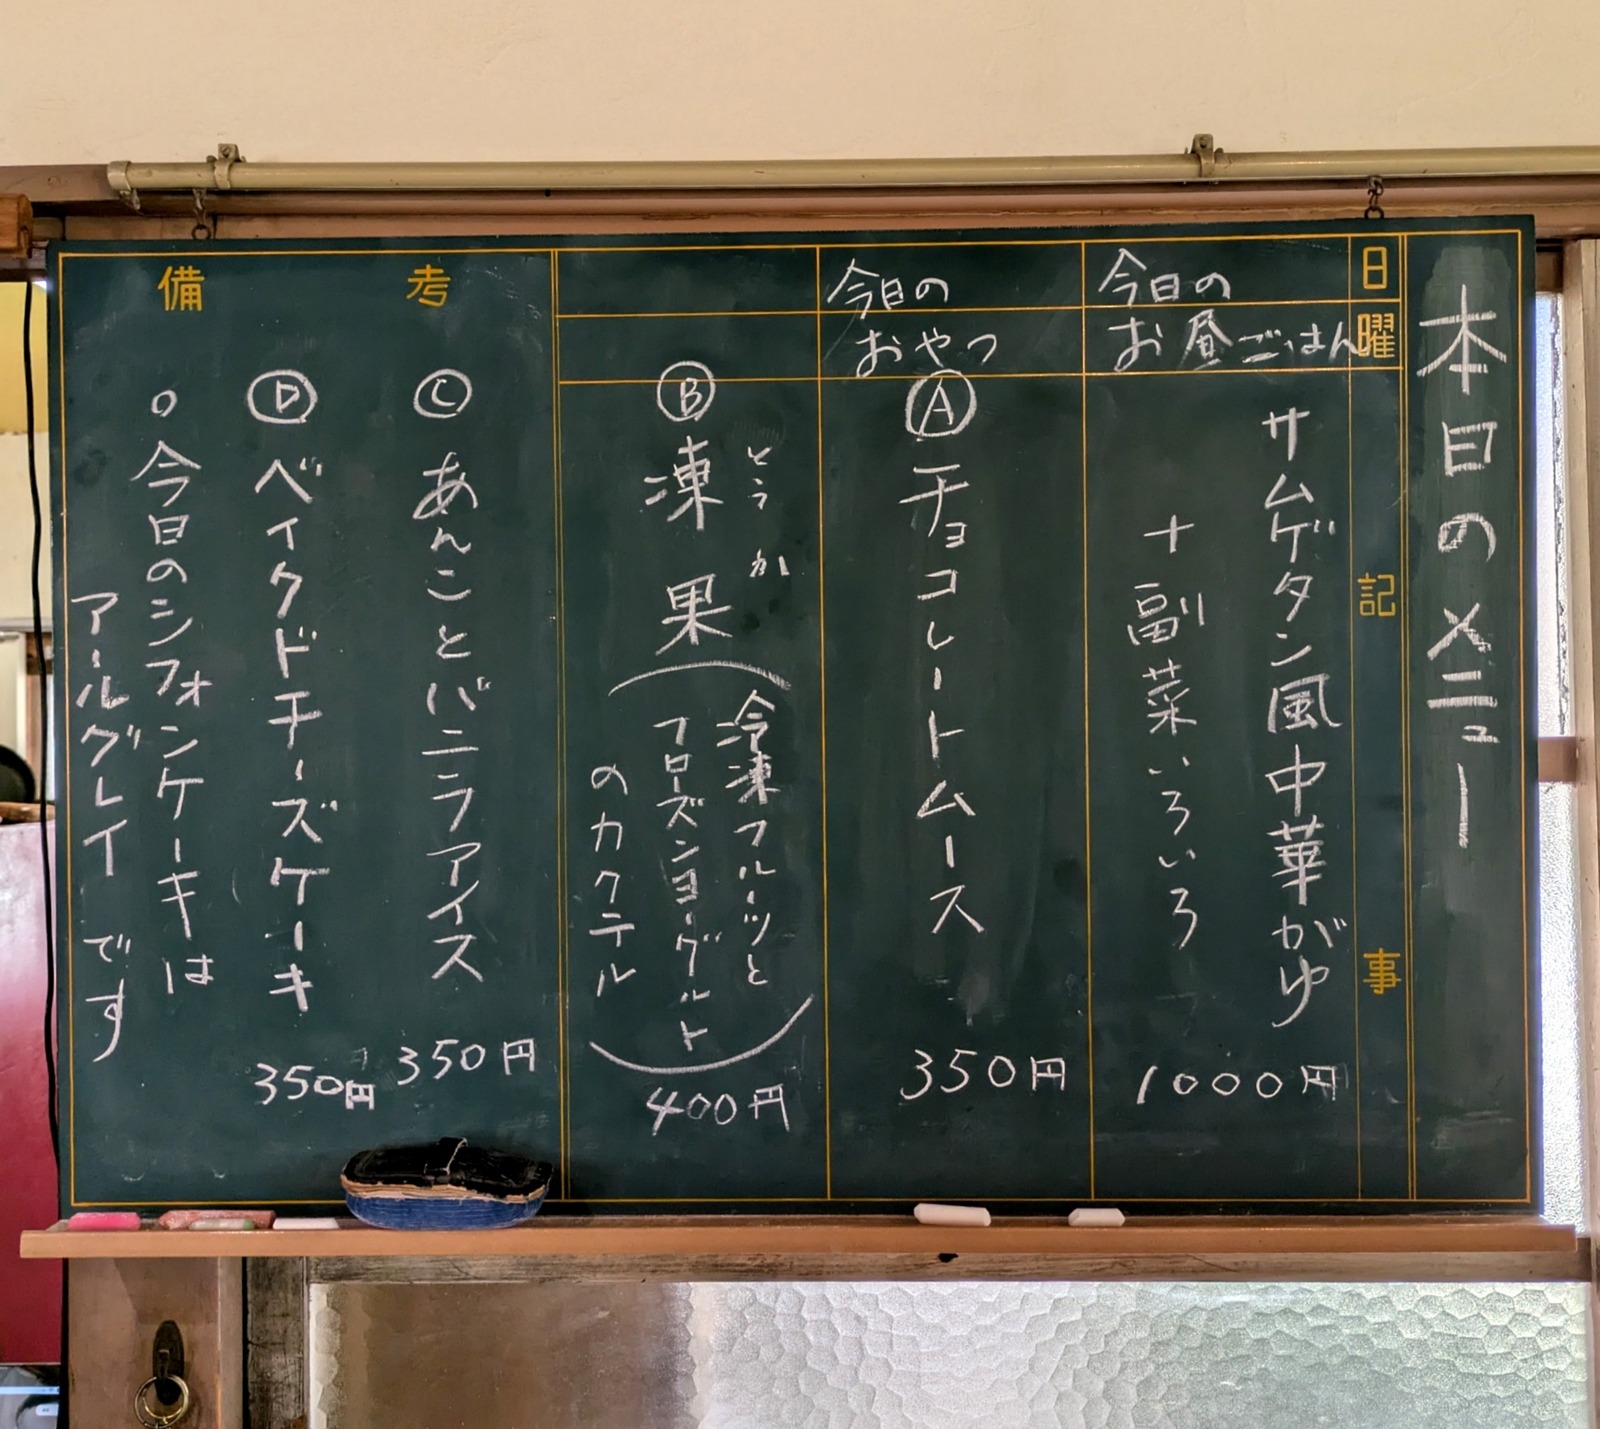 本日のメニュー
日曜
記事
今日の
お昼ごはん
サムゲタン風中華がゆ
+副菜いろいろ
1000円
今日の
おやつ
Ⓐチョコレートムース
350円
Ⓑ凍果
とうか
(冷凍フルーツと
フローズンヨーグルト
のカクテル)
400円
備考
Ⓒあんことバニラアイス
350円
Ⓓベイクドチーズケーキ
350円
○今日のシフォンケーキは
アールグレイです